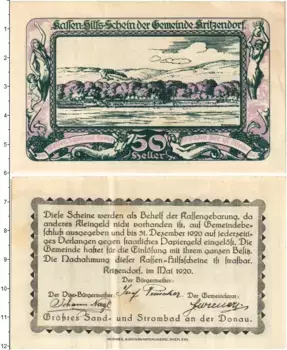 Kassen-Hilfs-Schein der Gemeinde Kritzendorf.
50
Heller
Diese Scheine werden als Behelf der Kassengebarung, da
anderes Kleingeld nicht vorhanden ist, auf Gemeindebe-
schluß ausgegeben und bis 31. Dezember 1920 auf jederzeiti-
ges Verlangen gegen staatliches Papiergeld eingelöst. Die
Gemeinde haftet für die Einlösung mit ihrem ganzen Besitz.
Die Nachahmung dieser Kassen-Hilfsscheine ist strafbar.
Kritzendorf, im Mai 1920.
Der Bürgermeister:
Der Vize-Bürgermeister:
Der Gemeinderat:
Größtes Sand- und Strombad an der Donau.